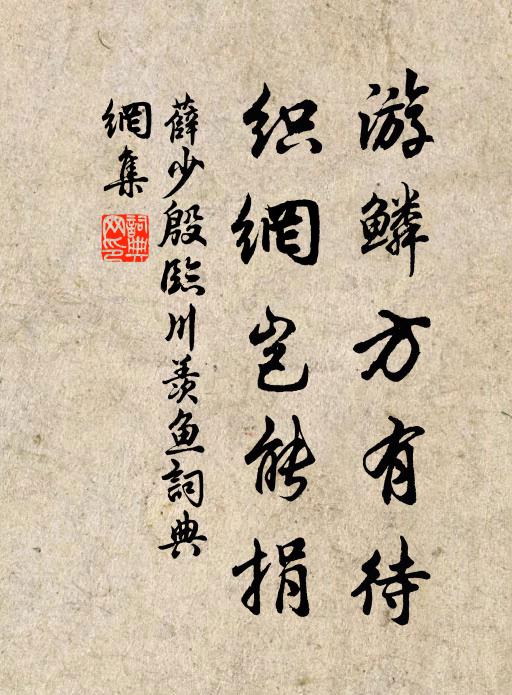 游鳞方有待
织網岂能捐
薛少殷臨川羡鱼詞典
網集
詞典
网印